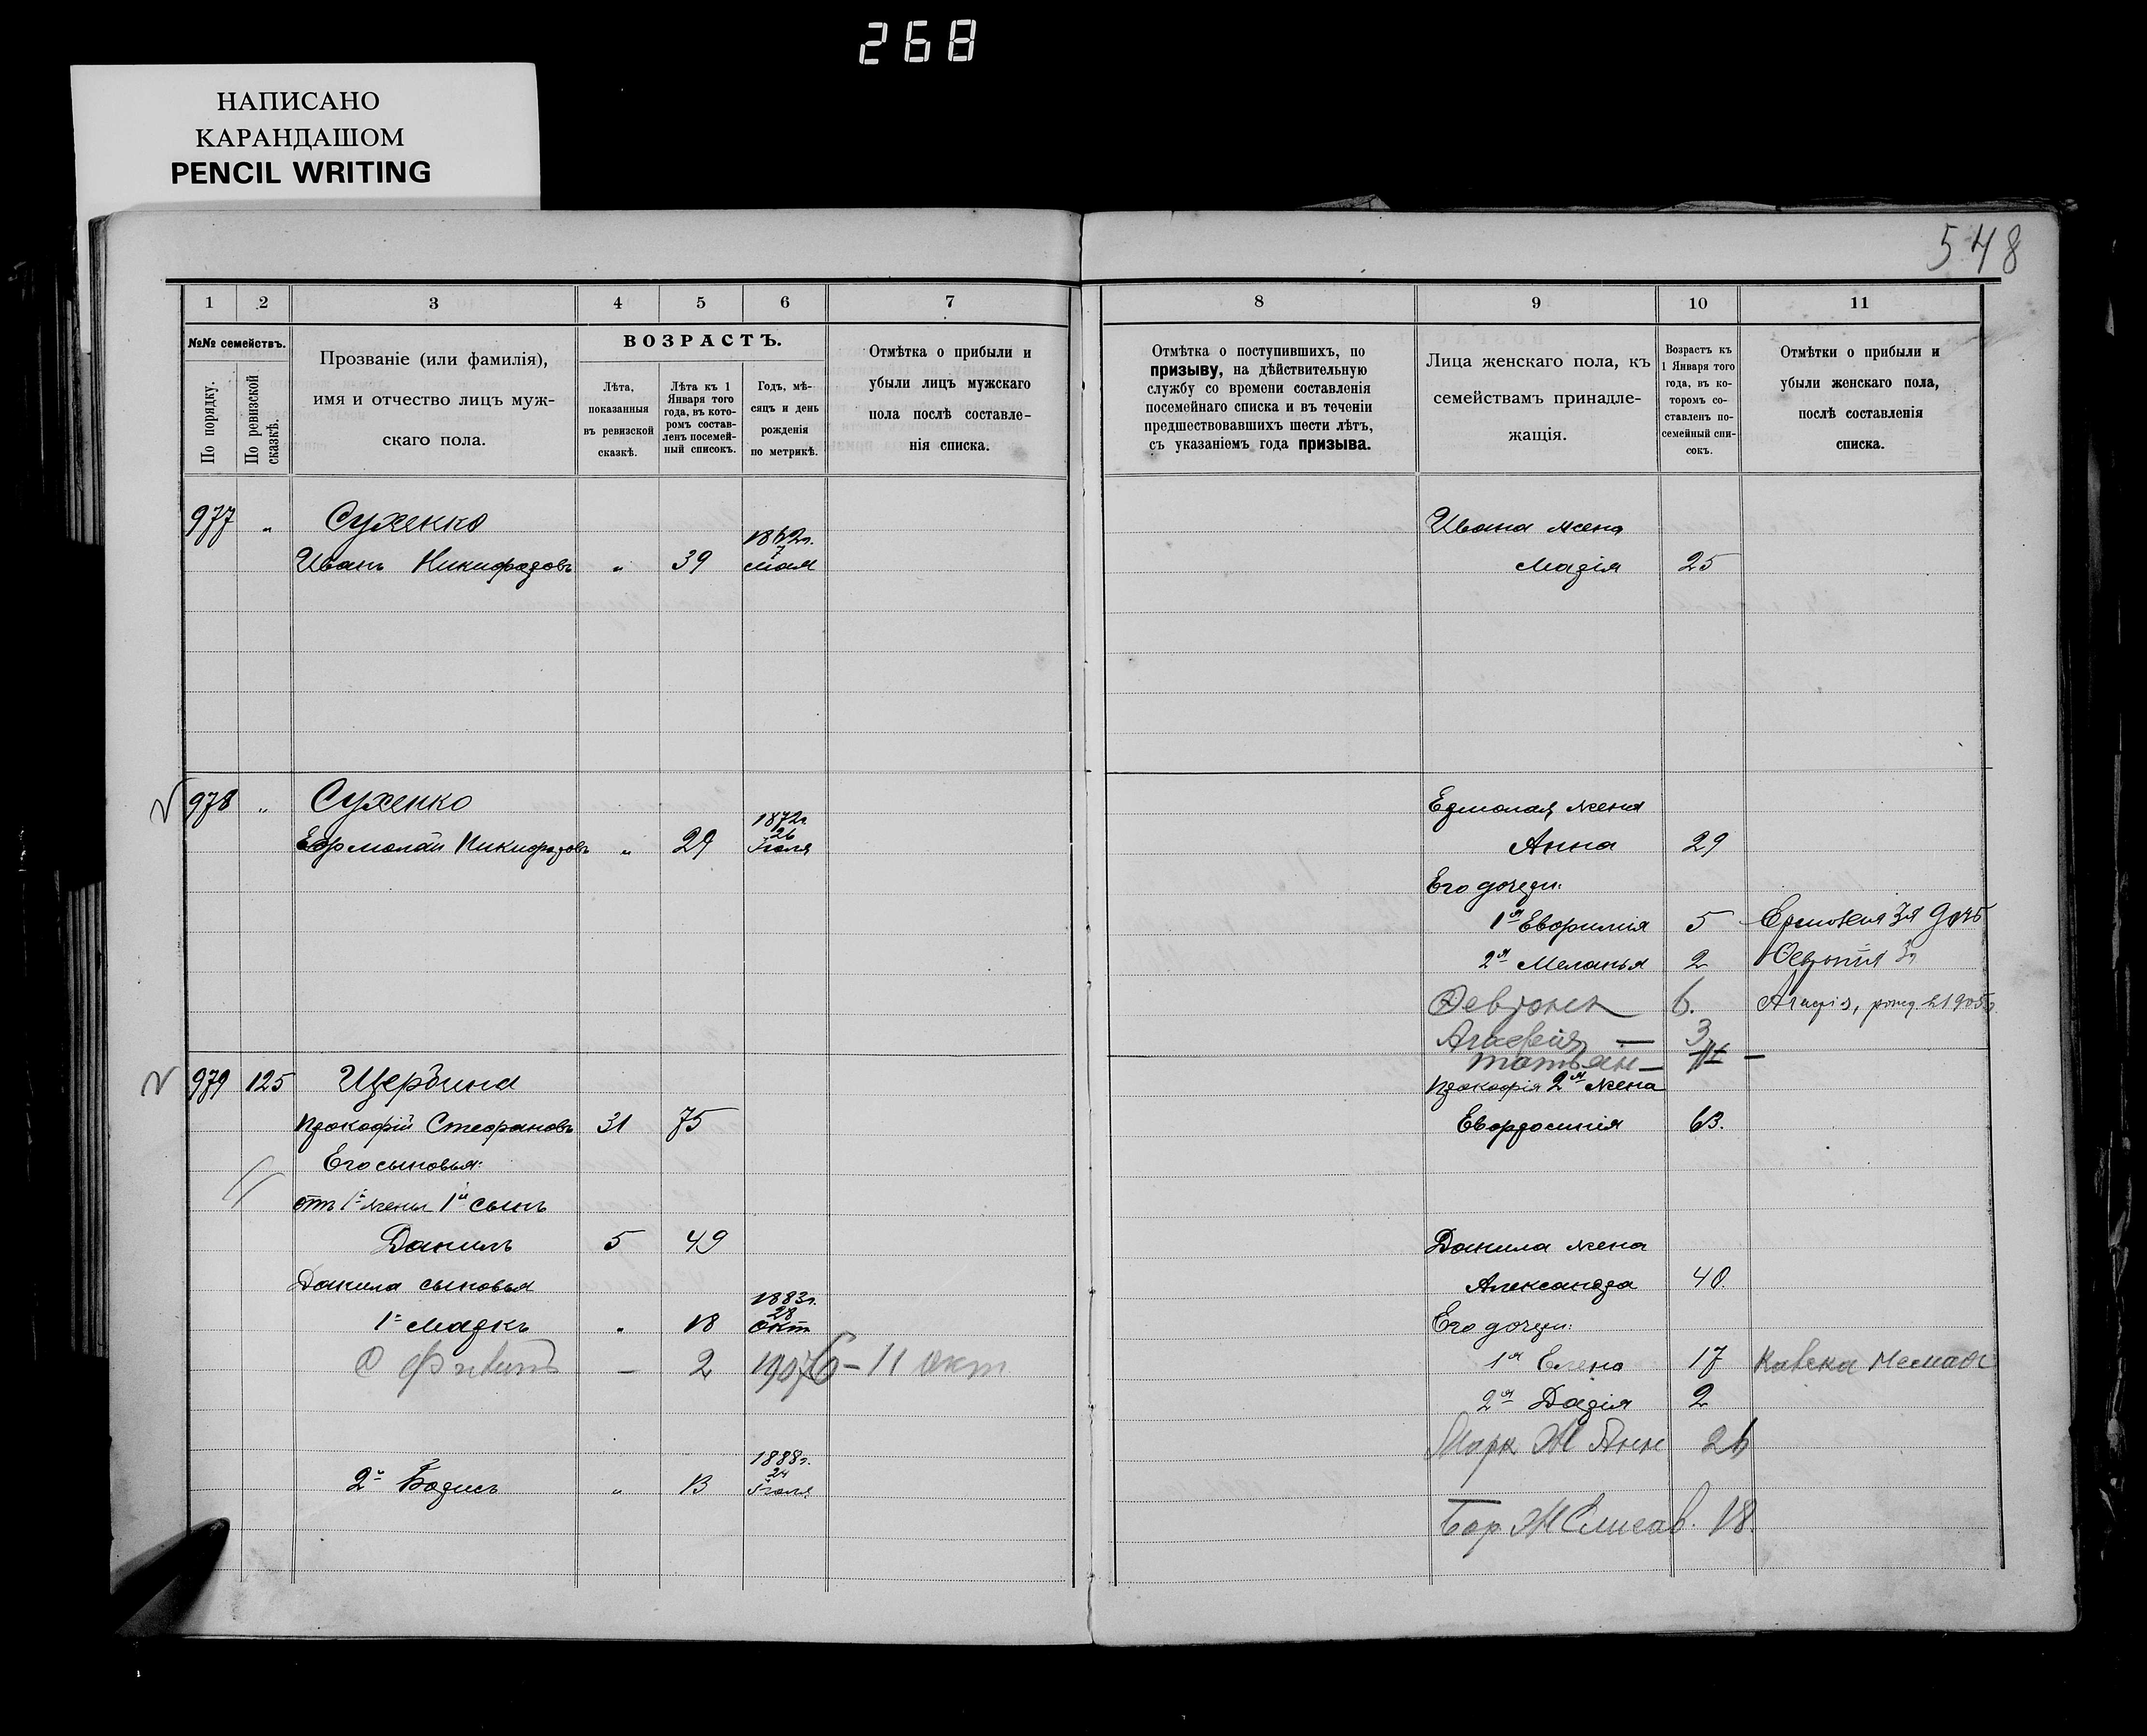 268
НАПИСАНО
КАРАНДАШОМ
PENCIL WRITING
548
1 2 3 4 5 6 7 8 9 10 11
№№ семействъ.
По порядку.
По ревизской сказкѣ.
Прозваніе (или фамилія),
имя и отчество лицъ муж-
скаго пола.
ВОЗРАСТЪ.
Лѣта,
показанныя
въ ревизской
сказкѣ.
Лѣта къ 1
Января того
года, въ кото-
ромъ состав-
ленъ посемей-
ный списокъ.
Годъ, мѣ-
сяцъ и день
рожденія
по метрикѣ.
Отмѣтка о прибыли и
убыли лицъ мужскаго
пола послѣ составле-
нія списка.
Отмѣтка о поступившихъ, по
призыву, на дѣйствительную
службу со времени составленія
посемейнаго списка и въ теченіи
предшествовавшихъ шести лѣтъ,
съ указаніемъ года призыва.
Лица женскаго пола, къ
семействамъ принадле-
жащія.
Возрастъ къ
1 Января того
года, въ ко-
торомъ со-
ставленъ по-
семейный спи-
сокъ.
Отмѣтки о прибыли и
убыли женскаго пола,
послѣ составленія
списка.
977 " Сухенко Ивана жена
Иванъ Никифоровъ " 39 7 мая Марія 25
978 " Сухенко Ермолая жена
Ермолай Никифоровъ " 29 1872г. 26 Іюля Анна 29
Его дочери:
1я Евфимія 5 3я дочь
2я Меланья 2
Февронія 6.
Агафія — 3 Агафія, рожд. в 1905г.
979 125 Щербина Прокофія 2я жена
Прокофій Стефановъ 31 75 Евфросинія 63.
Его сыновья:
отъ 1й жены 1й сынъ
Данилъ 5 49 Данила жена
Данила сыновья Александра 40.
1й Маркъ " 18 1883г. 28 окт Его дочери:
— 2 11 окт 1я Елена 17
2я Дарія 2
Марк Ж Анн 26
2й Борисъ " 13 1888г. 24 Іюля
Бор Ж Елисав. 18.